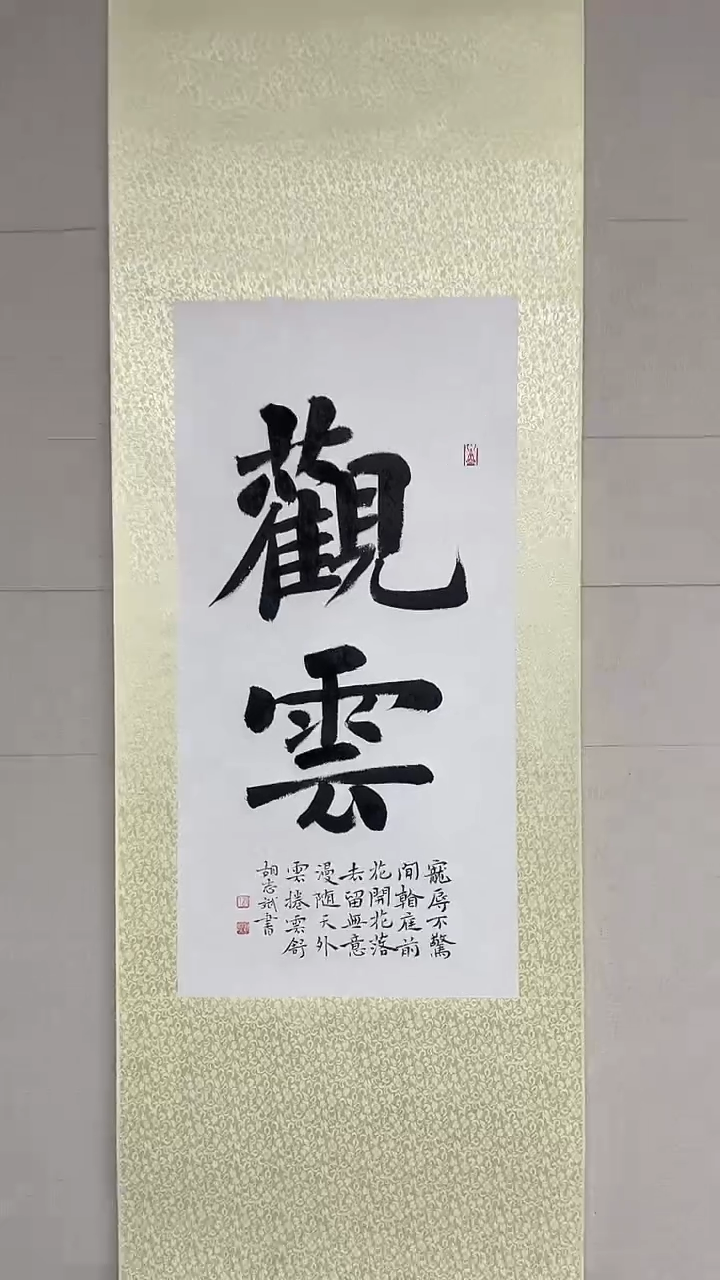 觀
雲
寵辱不驚
閒翰庭前
花開花落
去留無意
漫隨天外
雲捲雲舒
胡志斌書